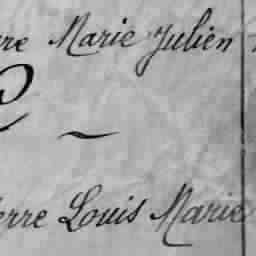 rre Marie Julien
erre Louis Marie